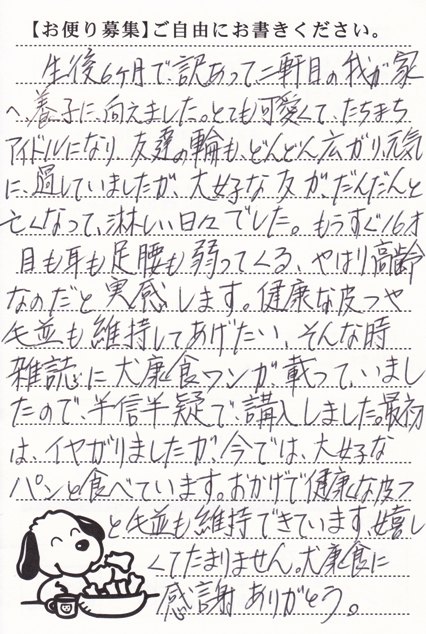 【お便り募集】ご自由にお書きください。
生後6ヶ月で訳あって、二軒目の我が家
へ、養子に、向えました。とても可愛くて、たちまち
アイドルになり、友達の輪も、どんどん広がり、元気
に、過していましたが、大好な友が、だんだんと
亡くなって、淋しい日々でした。もうすぐ16才
目も耳も足腰も弱ってくる、やはり高齢
なのだと実感します。健康な皮フや
毛並も維持してあげたい、そんな時
雑誌に犬康食ワンが、載って、いまし
たので、半信半疑で、購入しました。最初
は、イヤがりましたが、今では、大好な
パンと食べています。おかげで健康な皮フ
と毛並も維持できています、嬉し
くてたまりません。犬康食に
感謝ありがとう。